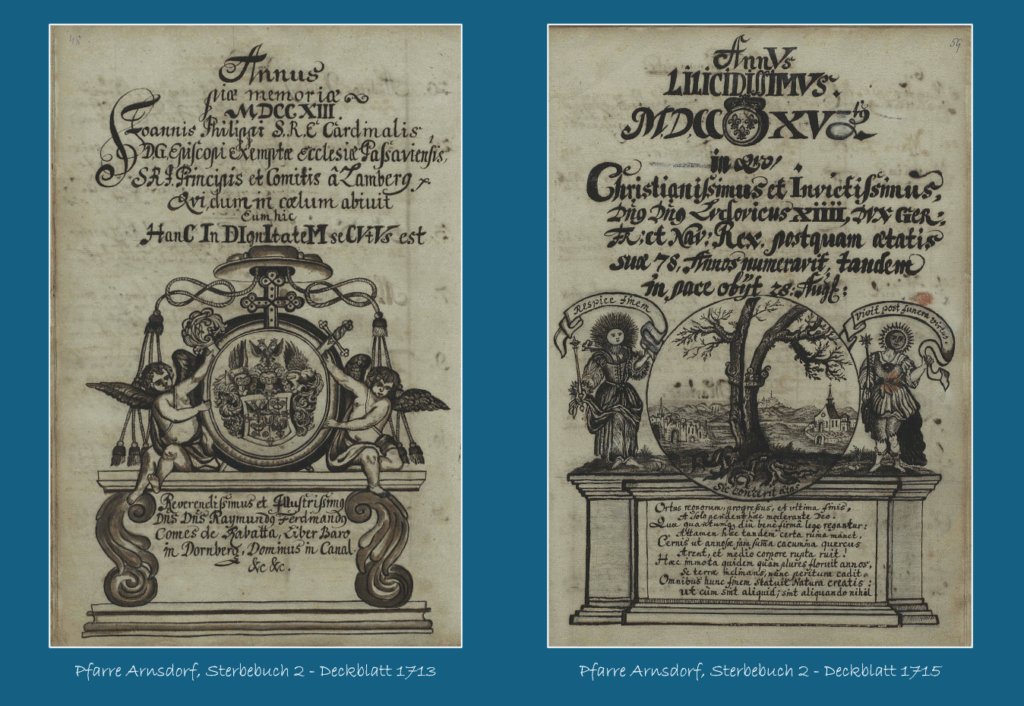 48
Annus
piæ memoriæ
MDCCXIII
Joannis Philippi S.R.E Cardinalis
D.G. Episcopi Exemptæ Ecclesiæ Passaviensis,
S.R.I. Principis et Comitis â Lamberg,
Qvi, dum in cælum abivit
Eum hic
HanC In DIgnItateM seCVtVs est
Reverendissimus et Illustrissimg
Dnš Dnš Raymundg Ferdinandg
Comes de Rabatta, Liber Baro
in Dornberg, Dominus in Canal
&c &c.
Pfarre Arnsdorf, Sterbebuch 2 - Deckblatt 1713
AnnVs
LILICIDIssIMVs.
MDCC XVtg
in qvo
Christianissimus et Invictissimus,
Dñg Dñg Lvdovicus XIIII, 
et Nav: Rex, postquam ætatis
suæ 78. Annos numeravit, tandem
in pace obÿt 28. 
Respice finem
Vivit post funera virtus.
Ortus regnorum, progressus, et ultima finis,
A solo pendent hæc moderante Deo.
Quæ quantumq diu bene firmâ lege regantur:
Attamen hæc tandem certa ruina manet.
Cernis ut annosæ jam cacumina quercus
Arent, et medio corpore rupta ruit!
Hæc immota quidem quam plures floruit annos,
Se terræ inclinans, nunc peritura cadit.
Omnibus hunc finem statuit Natura creatis:
ut cùm sint aliquid; sint aliquando nihil
Pfarre Arnsdorf, Sterbebuch 2 - Deckblatt 1715